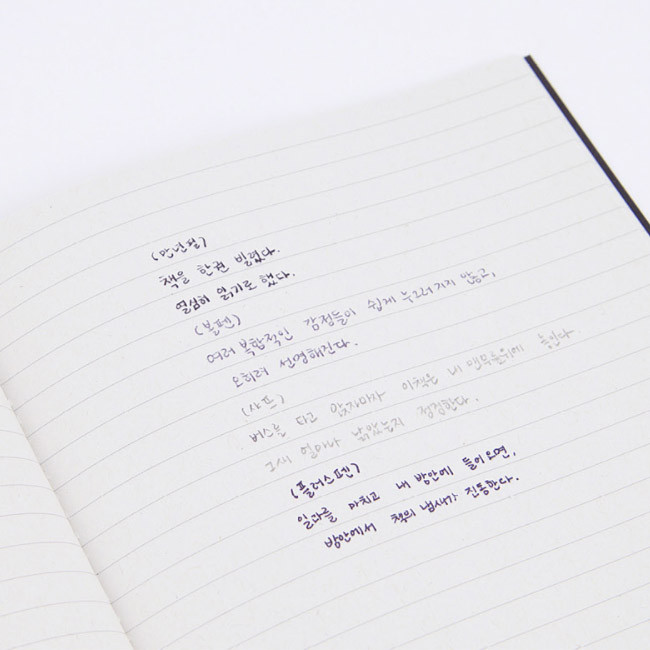 (만년필)
책을 한권 빌렸다.
열심히 읽기로 했다.
(볼펜)
여러 복합적인 감정들이 쉽게 누그러지지 않고,
오히려 선명해진다.
(샤프)
버스를 타고 앉자마자 이책은 내 맨무릎위에 놓인다
그새 얼마나 낡았는지 점검한다.
(플러스펜)
일과를 마치고 내 방안에 들어오면,
방안에서 책의 냄새가 진동한다.